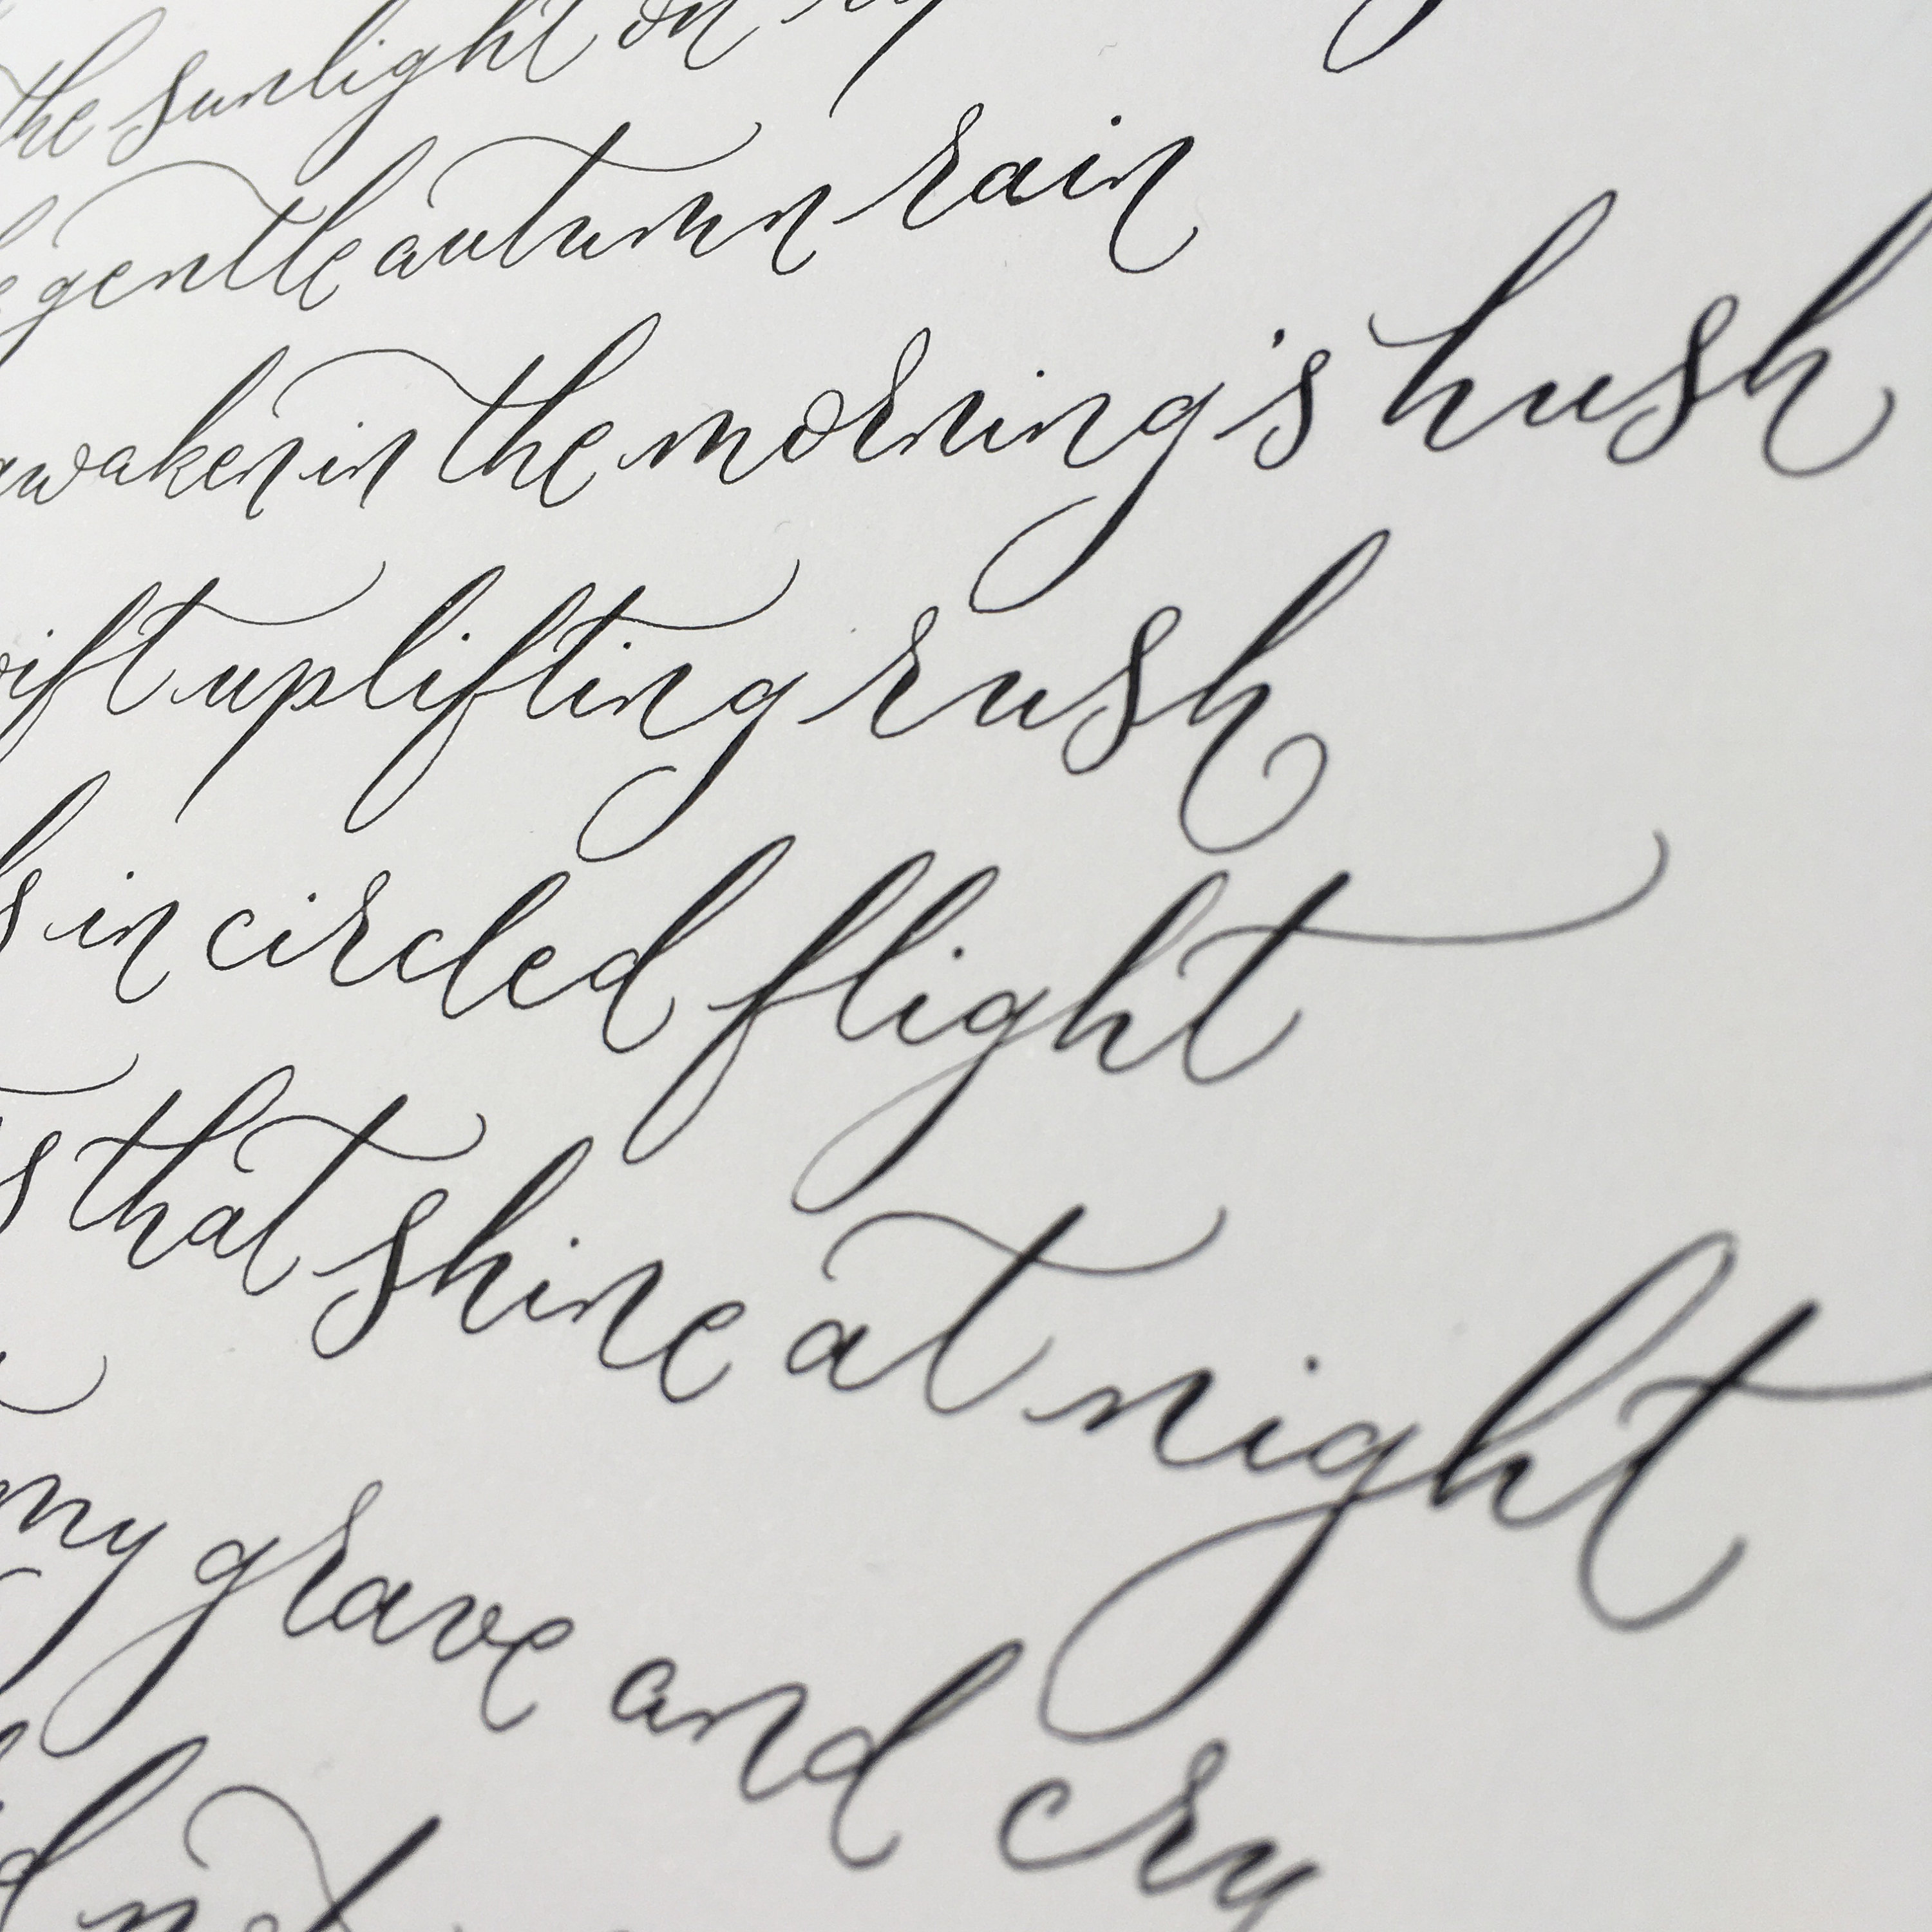 the sunlight on
gentle autumn rain
awaken in the morning's hush
uplifting rush
in circled flight
that shine at night
my grave and cry